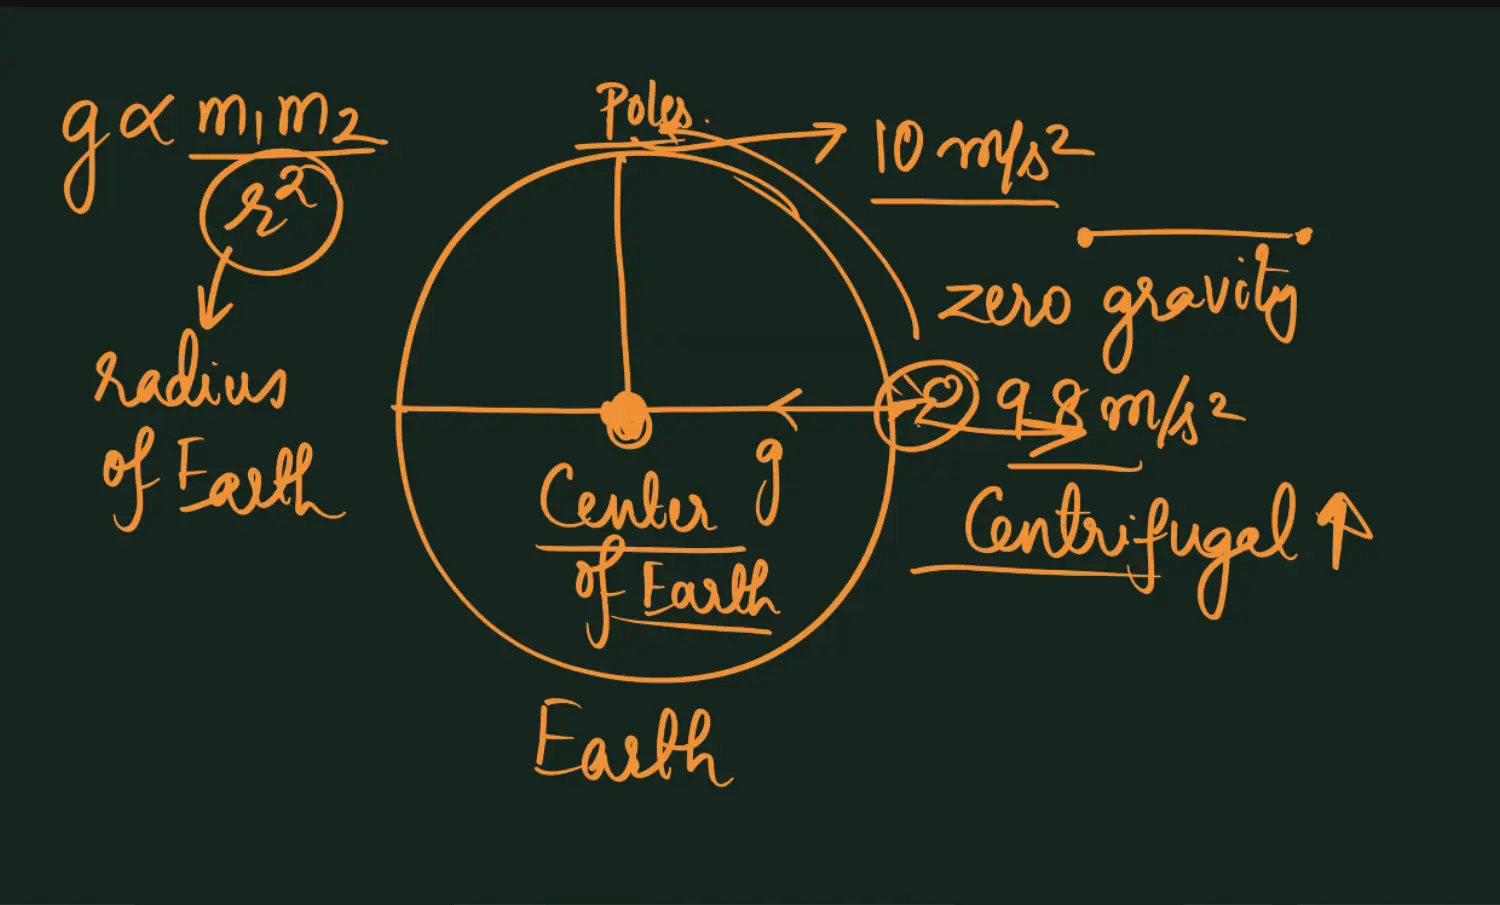 g ∝ m₁m₂
r²
radius
of Earth
Poles.
10 m/s²
zero gravity
9.8 m/s²
Centrifugal ↑
g
Center
of Earth
Earth